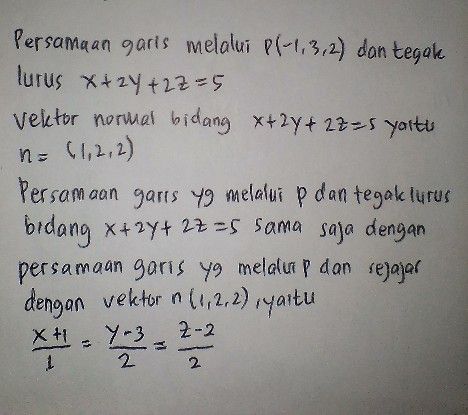 Persamaan garis melalui P(-1,3,2) dan tegak
lurus x+2y+2z=5
Vektor normal bidang x+2y+2z=5 yaitu
n= (1,2,2)
Persamaan garis yg melalui p dan tegak lurus
bidang x+2y+2z=5 sama saja dengan
persamaan garis yg melalui p dan sejajar
dengan vektor n (1,2,2), yaitu
x+1/1 = y-3/2 = z-2/2